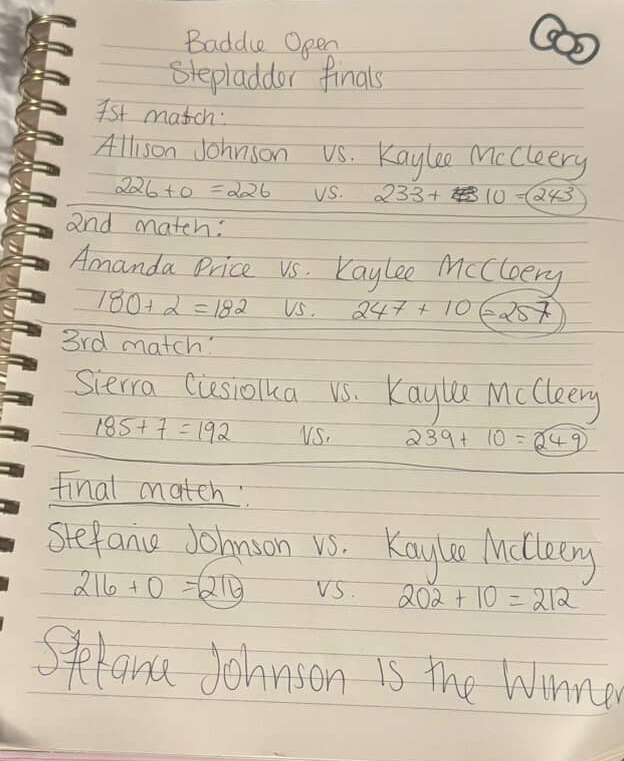 Baddie Open
Stepladder finals
1st match:
Allison Johnson vs. Kaylee McCleery
226+0 =226 vs. 233+ 10 =243
2nd match:
Amanda Price vs. Kaylee McCleery
180+2 =182 vs. 247 + 10 =257
3rd match:
Sierra Ciesiolka vs. Kaylee McCleery
185+7 =192 vs. 239+ 10 =249
Final match:
Stefanie Johnson vs. Kaylee McCleery
216 +0 =216 vs. 202 +10 = 212
Stefanie Johnson is the Winner